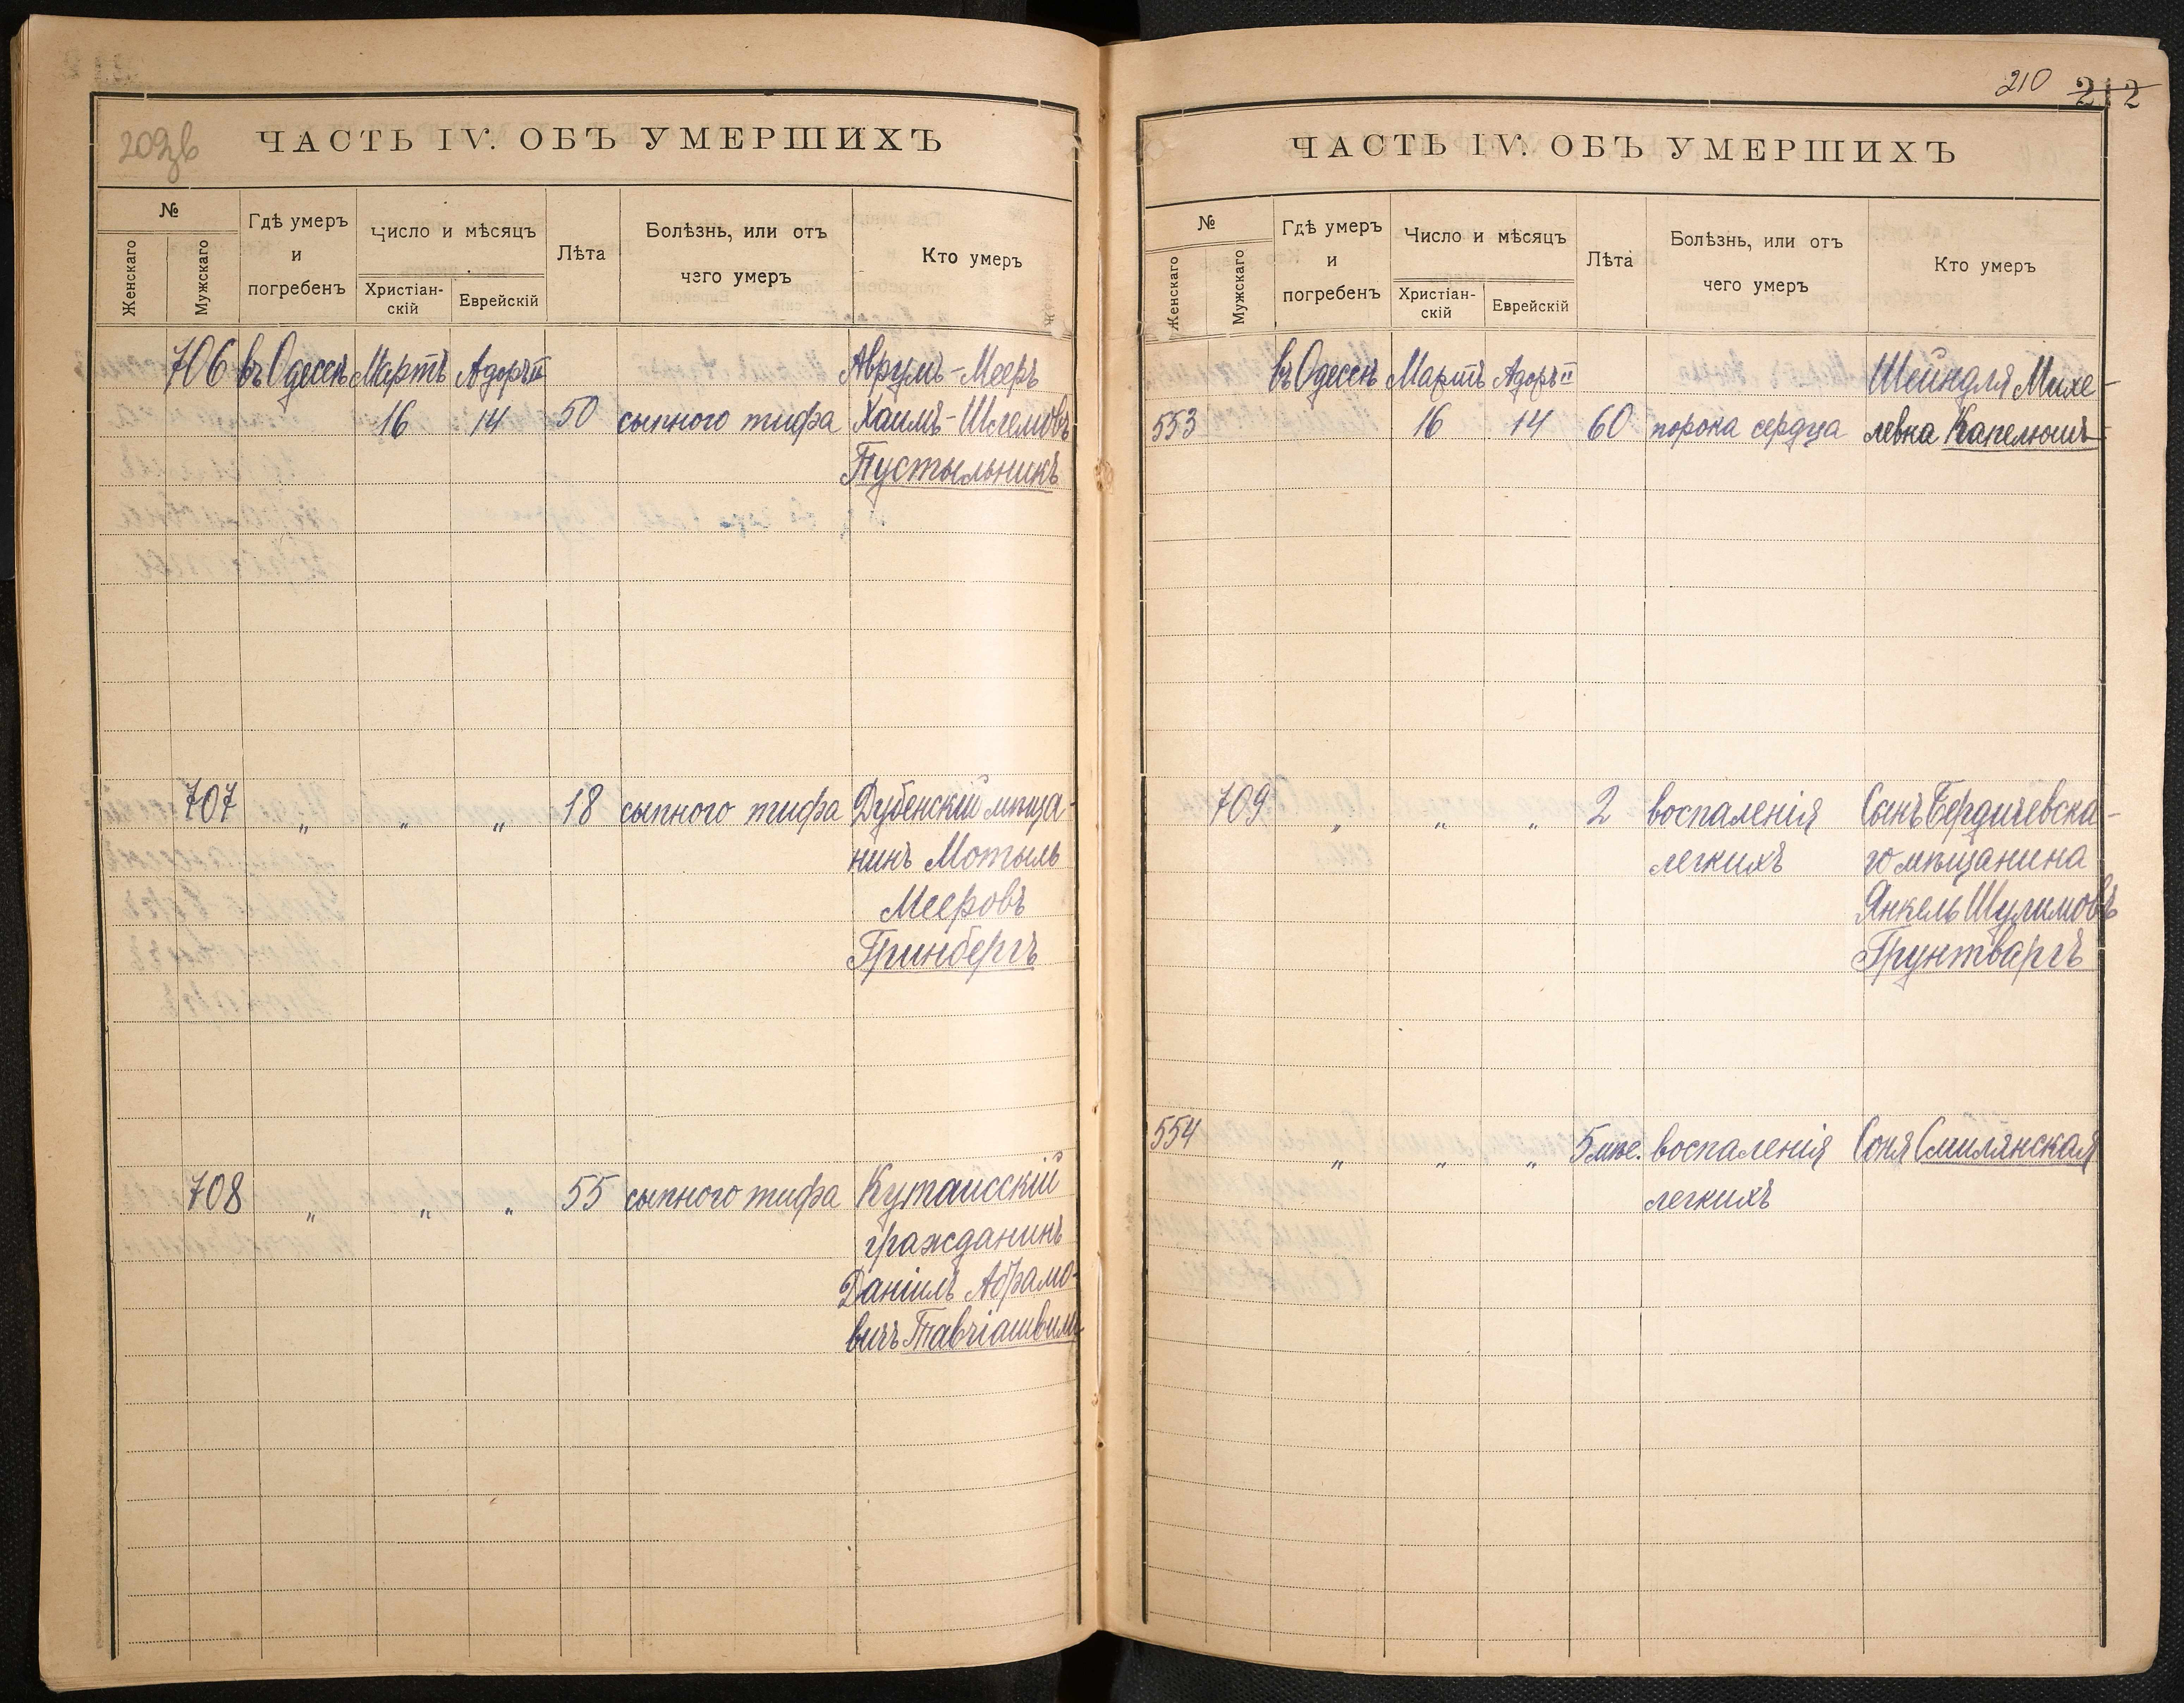 209зв
ЧАСТЬ IV. ОБЪ УМЕРШИХЪ
№
Женскаго
Мужскаго
Гдѣ умеръ
и
погребенъ
Число и мѣсяцъ
Христіан-
скій
Еврейскій
Лѣта
Болѣзнь, или отъ
чего умеръ
Кто умеръ
706 въ Одессѣ Мартъ Адоръ II Аврумъ-Мееръ
16 14 50 сыпного тифа Хаимъ-Шлемовъ
Пустыльникъ
707 „ „ „ 18 сыпного тифа Дубенскій мѣща-
нинъ Мотыль
Мееровъ
Гринбергъ
708 „ „ „ 55 сыпного тифа Кутаисскій
гражданинъ
Даніилъ Абрамо-
вичъ Тавчіашвили
210 212
ЧАСТЬ IV. ОБЪ УМЕРШИХЪ
№
Женскаго
Мужскаго
Гдѣ умеръ
и
погребенъ
Число и мѣсяцъ
Христіан-
скій
Еврейскій
Лѣта
Болѣзнь, или отъ
чего умеръ
Кто умеръ
въ Одессѣ Мартъ Адоръ II Шейндля Михе-
553 16 14 60 порока сердца левна Капелюшъ
709 „ „ „ 2 воспаленія Сынъ Бердичевска-
легкихъ го мѣщанина
Янкель Шулимовъ
Грунтваргъ
554 „ „ „ 5 мѣс. воспаленія Соня Смилянская
легкихъ